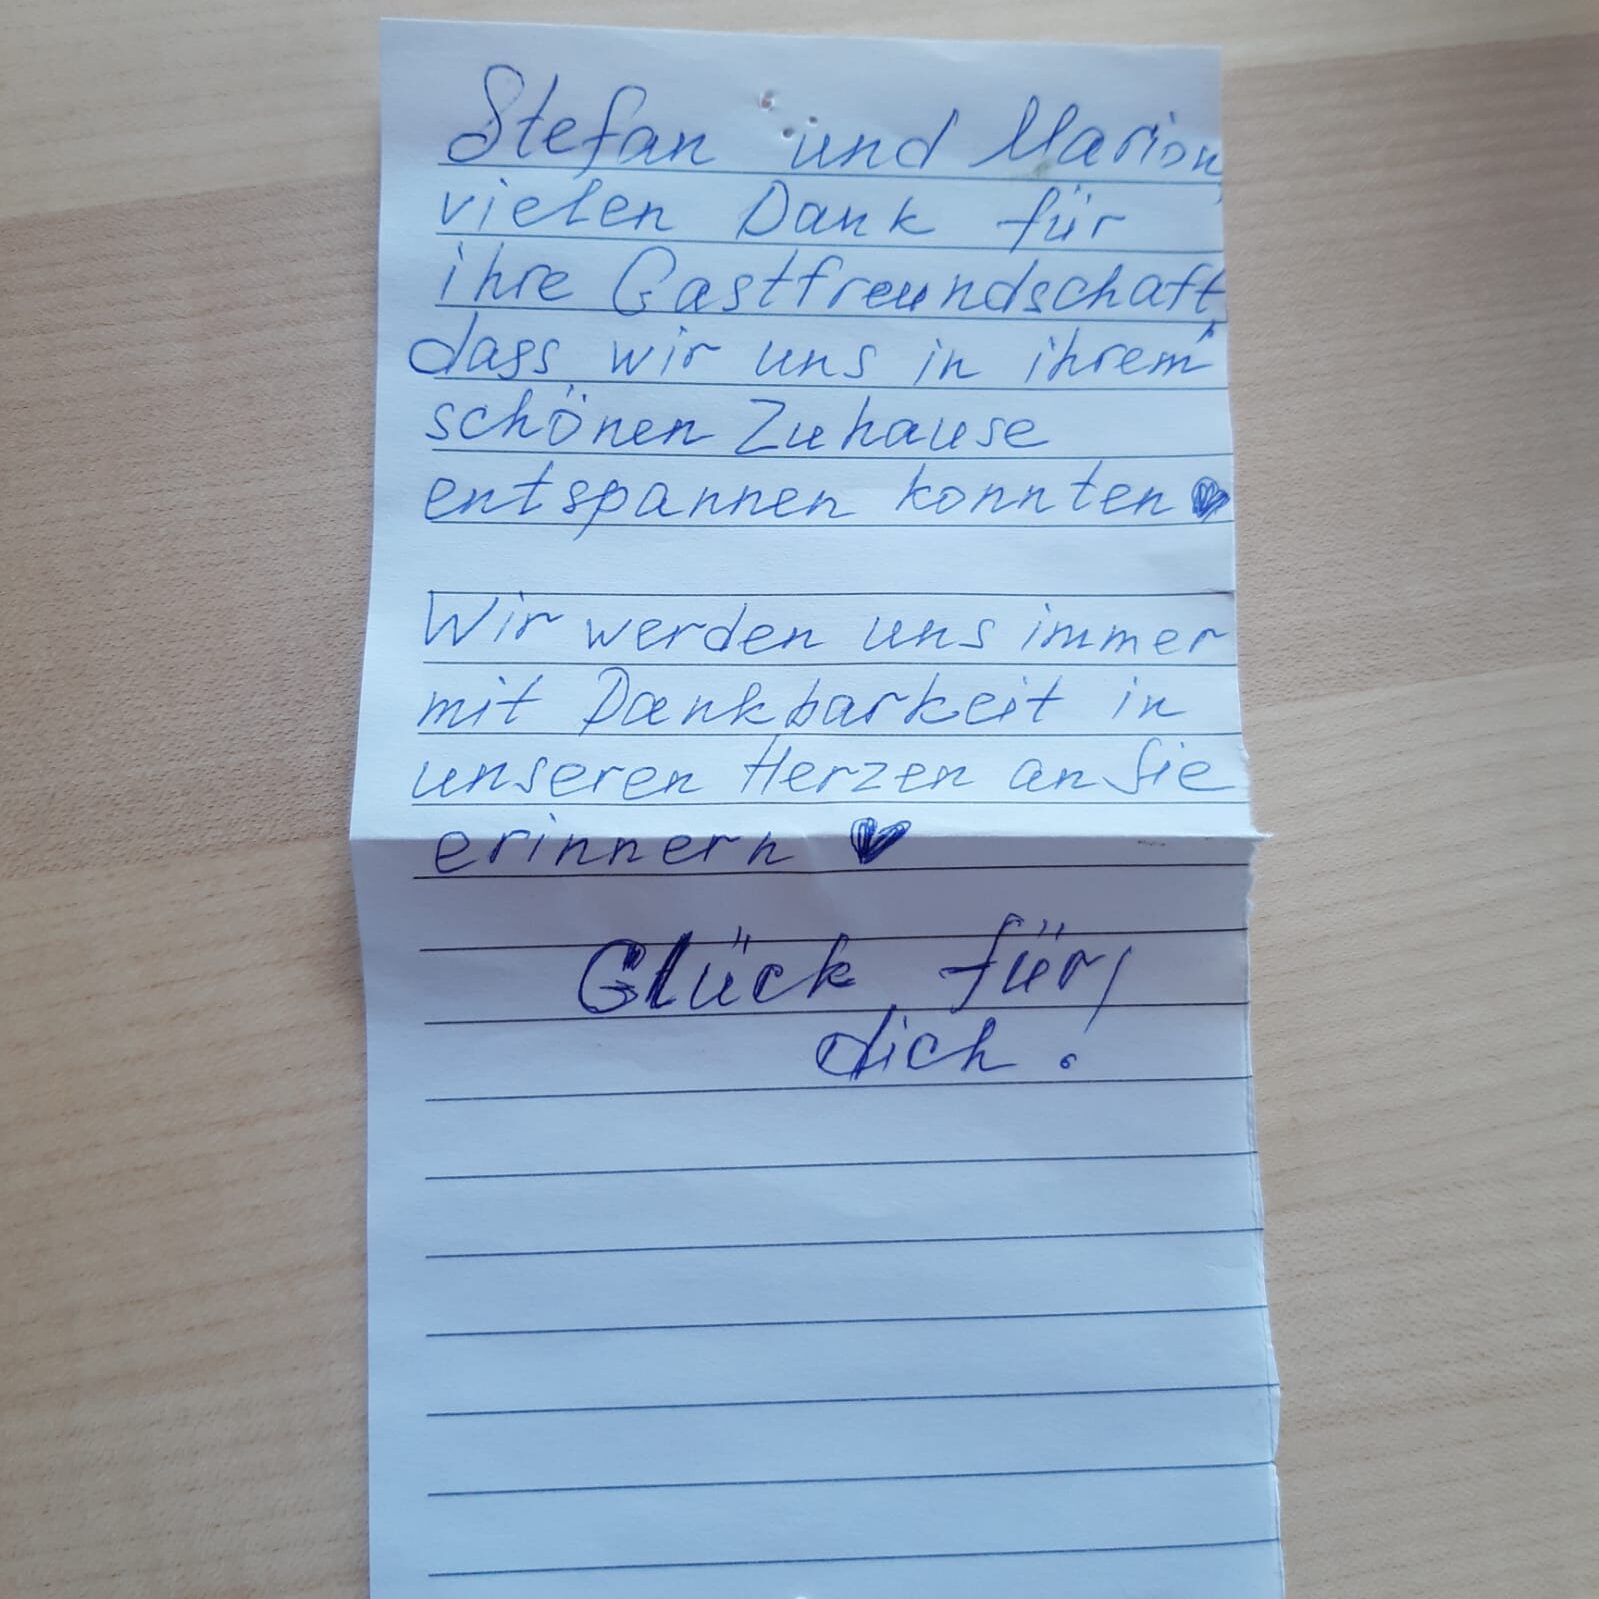 Stefan und Marion,
vielen Dank für
ihre Gastfreundschaft,
dass wir uns in ihrem
schönen Zuhause
entspannen konnten ♥
Wir werden uns immer
mit Dankbarkeit in
unseren Herzen an Sie
erinnern ♥
Glück für
dich!